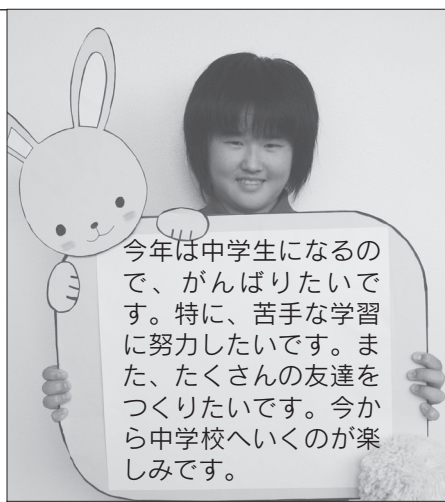 今年は中学生になるの
で、がんばりたいで
す。特に、苦手な学習
に努力したいです。ま
た、たくさんの友達を
つくりたいです。今か
ら中学校へいくのが楽
しみです。